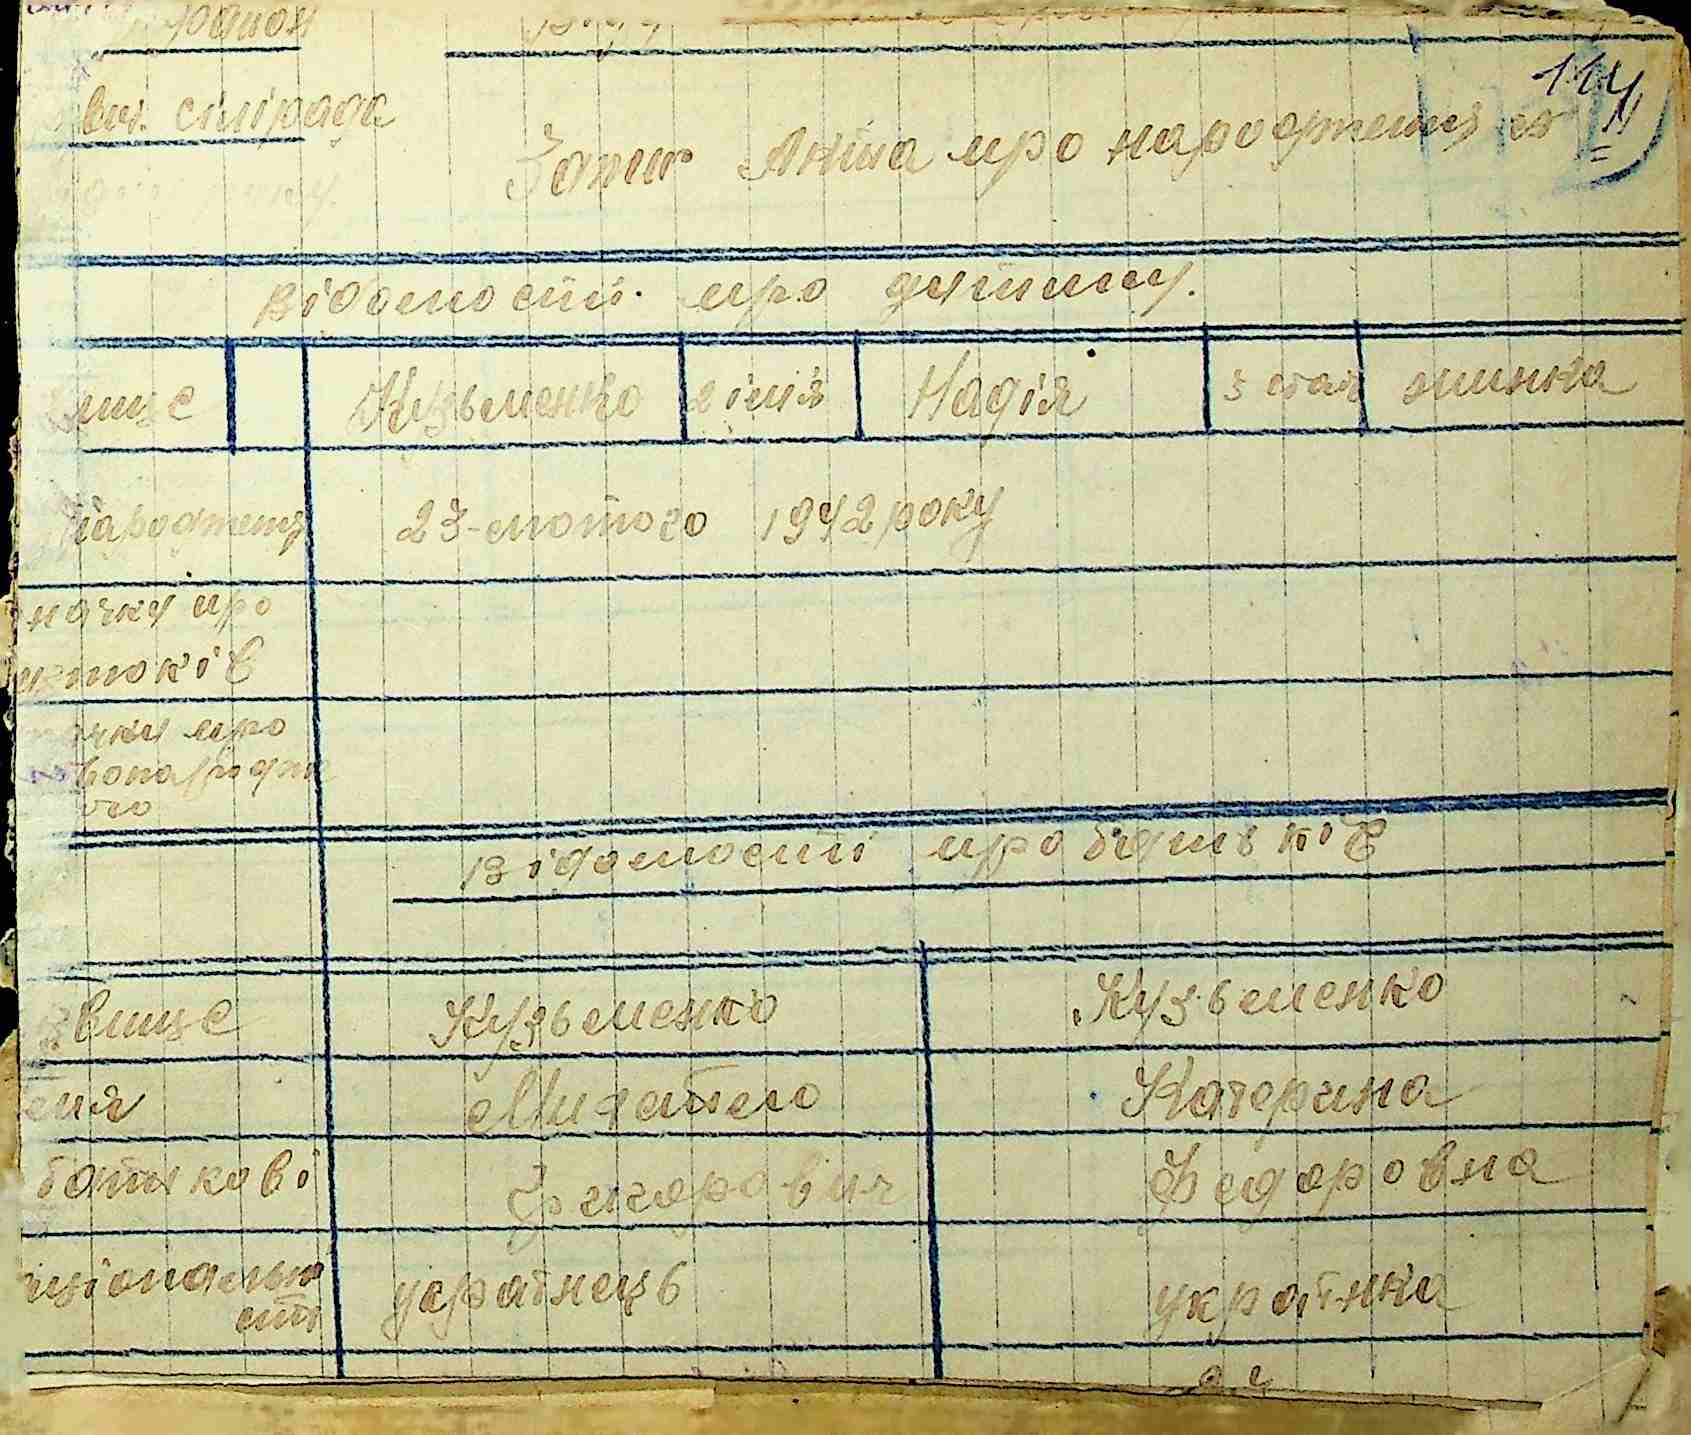 район
сільрада 114
Запис Акта про народження №
відомості про дитину.
звище Кузьменко 2 імя Надія 3 стать жинка
народження 23-лютого 1942 року
начки про
тків
чки про
відомості про батьків
звище Кузьменко Кузьменко
емя Михайло Катерина
батькові Григорович Федоровна
ціональн українець українка
сть